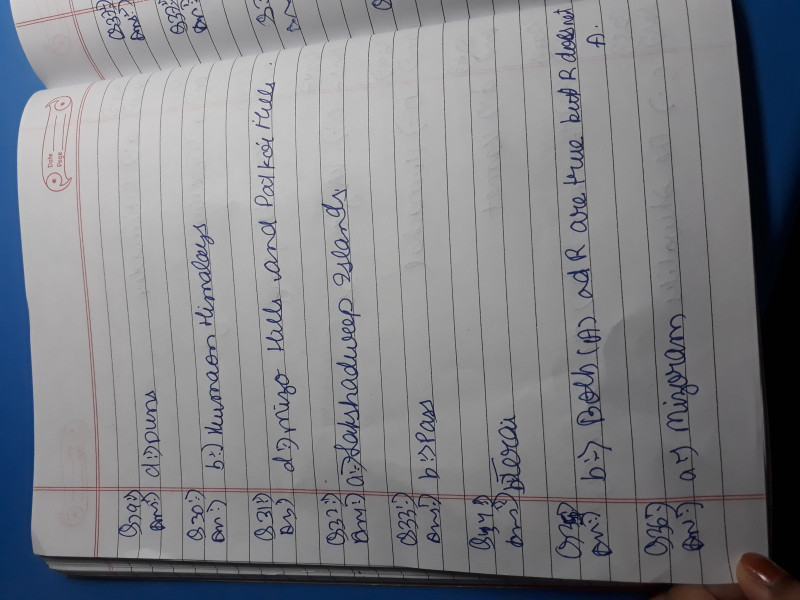 Date
Page
Q29:)
Ans:) d:) Duns
Q30:)
Ans:) b:) Kumaon Himalays
Q31:)
Ans:) d:) Mizo Hills and Patkoi Hills.
Q32:)
Ans:) a:) Lakshadweep Islands
Q33:)
Ans:) b:) Pass
Q34:)
Ans:) Terai
Q35:)
Ans:) b:) Both (A) ad R are true but R doesnot
A.
Q36:)
Ans:) a:) Mizoram